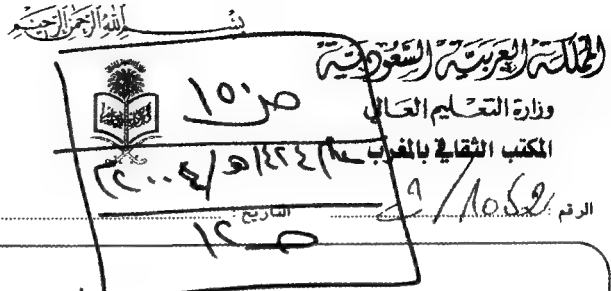 بسم الله الرحمن الرحيم
المملكة العربية السعودية
وزارة التعليم العالي
المكتب الثقافي بالمغرب
الرقم
التاريخ:
ص ١٥٠
١٤٢٤هـ / ٢٠٠٤م
ص ١٢